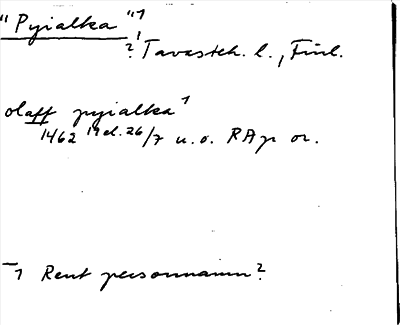 "Pyialka" ¹
? Tavasteh. l., Finl.
olaff pyialka¹
1462 19 el. 26/7 u. o. RAp or.
¹ Rent personnamn?